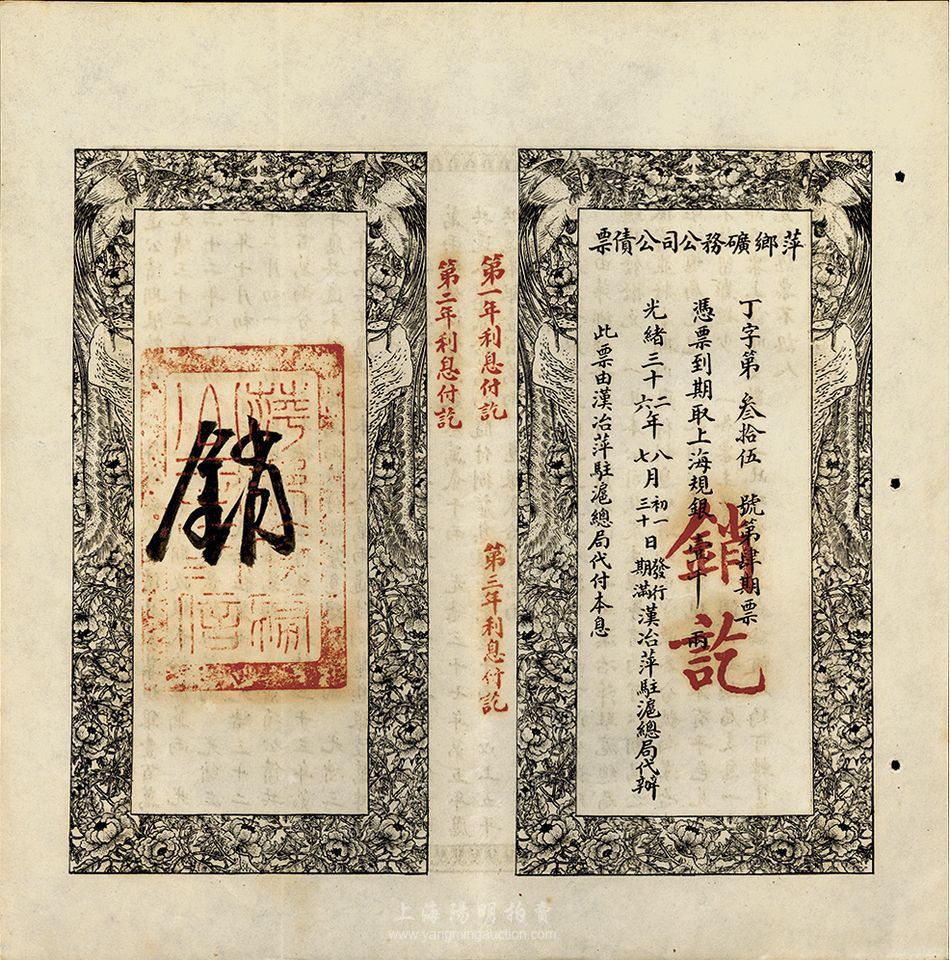 萍鄉礦務公司公債票
丁字第叁拾伍號第肆期票
憑票到期取上海規銀壹千兩
光緒三十二年八月初一日發行
六七三十期滿
漢冶萍駐滬總局代辦
此票由漢冶萍駐滬總局代付本息
銷訖
第一年利息付訖
第二年利息付訖
第三年利息付訖
銷
上海陽明拍賣
www.yangmingauction.com